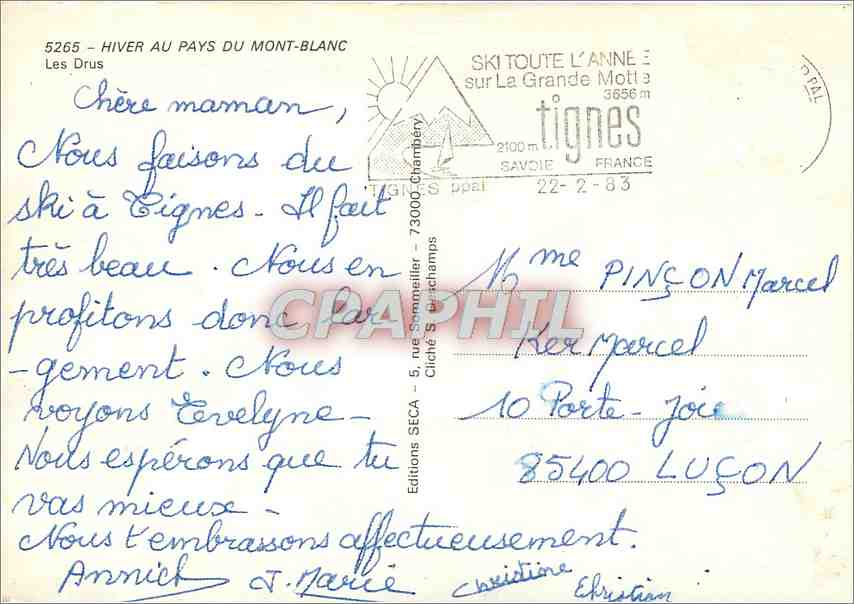 5265 - HIVER AU PAYS DU MONT-BLANC
Les Drus
Chère maman,
Nous faisons du
ski à Tignes - Il fait
très beau. Nous en
profitons donc lar
-gement. Nous
voyons Evelyne -
Nous espérons que tu
vas mieux -
Nous t'embrassons affectueusement.
Annick J. Marie Christine Christian
SKI TOUTE L'ANNEE
sur La Grande Motte
3656 m
tignes
2100 m
SAVOIE FRANCE
TIGNES ppal 22-2-83
PPAL
Editions SECA - 5, rue Sommeiller - 73000 Chambéry
Cliché S. Deschamps
CPAPHIL
Mme PINÇON Marcel
Ker Marcel
10 Porte-Joie
85400 LUÇON